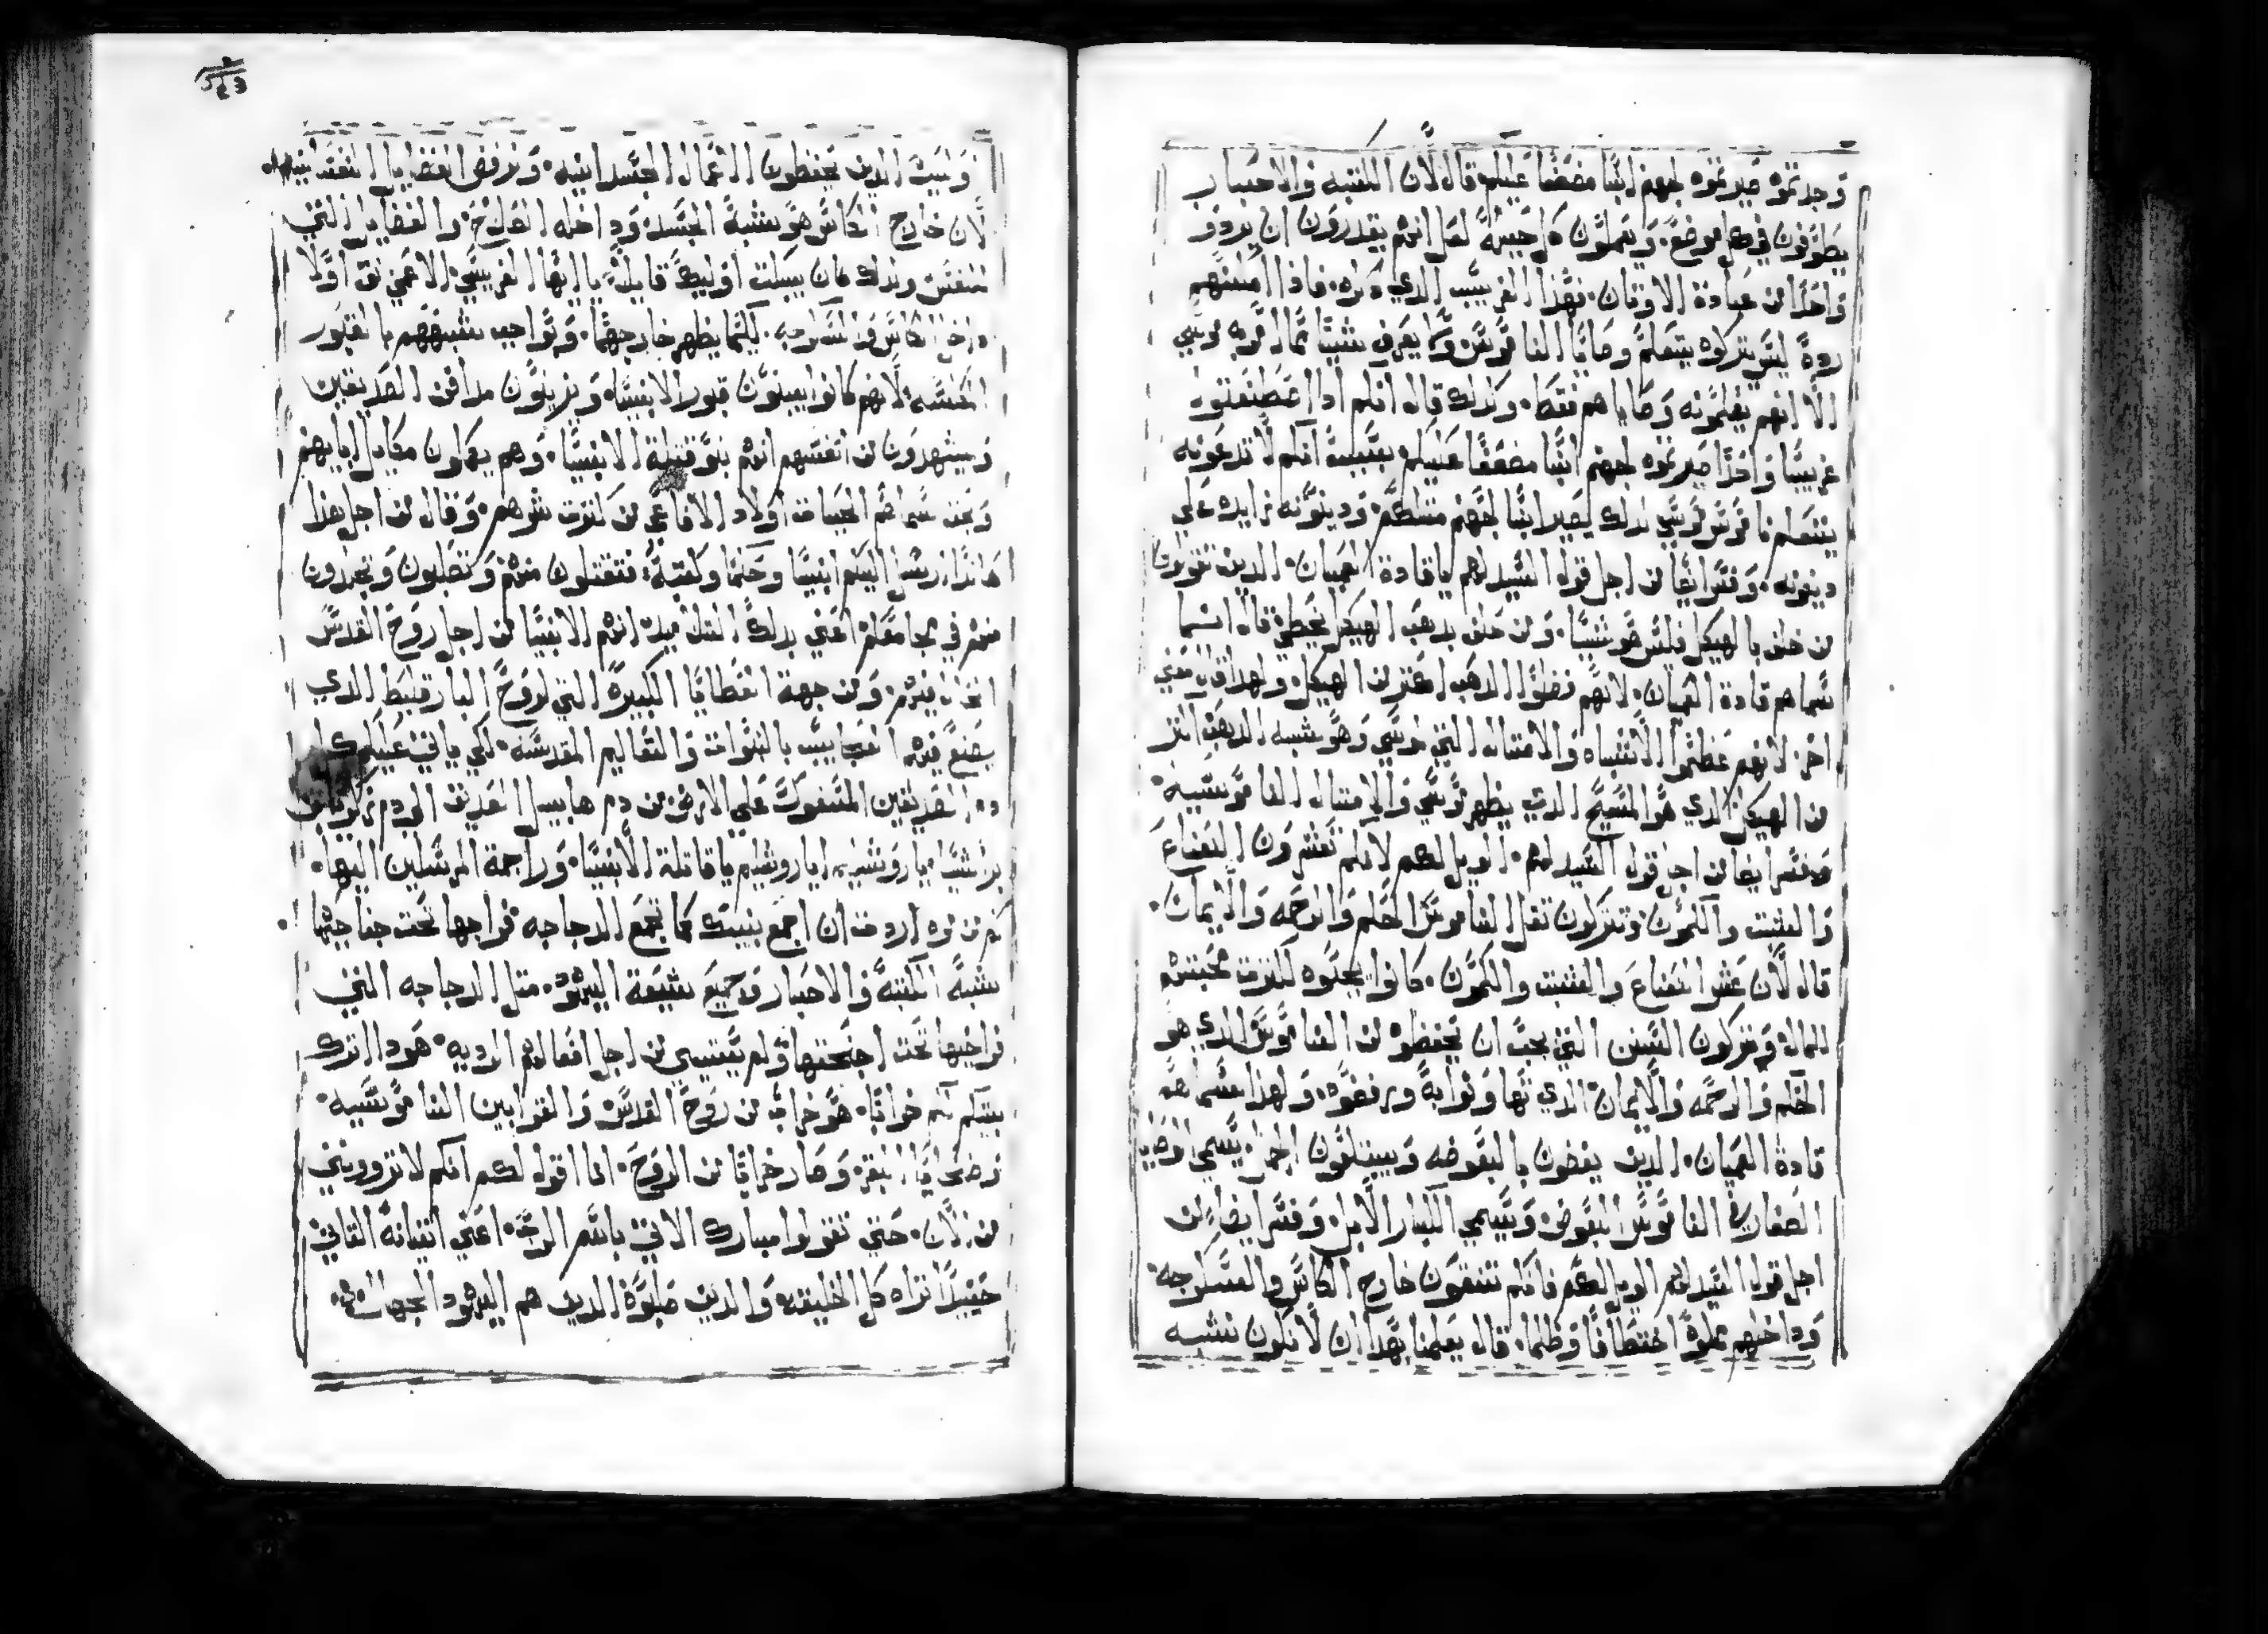 وجدتموه صيرتموه لجهنم ابنًا مضعفًا عليكم قال لأن الكتبه والاحبار
يطوفون في كل موضع. ويعملون كل حيله لعل انهم يقدرون ان يردو
واحدًا من عبادة الاوتان. فهذا الغريب الدي دكره. فاذا
ردوه ليس يتركوه يتعلم وصايا الناموس ولا يعرف شيئًا مما امر به موسي
الا انهم يعلمونه وصاياهم فقط. ولدلك قال انكم ادا اصطنعتوا
غريبًا واحدًا صيرتموه لجهنم ابنًا مضعفًا عليكم بسبب انكم لا تدعونه
يتعلم ناموس موسي لدلك يصير ابنًا لجهنم متلكم. ودينونه زايده علي
دينونه. وفسر ايضًا من اجل قول السيد لهم يا قادة العميان. الدين تقولون
من حلف بالهيكل فليس هو شيئًا. ومن حلف بدهب الهيكل يخطي قال انما
سماهم قادة العميان. لانهم فضلوا الدهب اكتر من الهيكل. ولهدا قال معني
اخر لانهم عظموا الاشباه والامتال التي لموسي وهو شبه الدهب اكتر
من الهيكل الدي هو المسيح الدي يظهر لموسي والامتال الناموسيه.
وفسر ايضا من اجل قول السيد لهم. الويل لكم لانكم تعشرون النعناع
والشبت والكمون وتتركون تقل الناموس الحكم والرحمه والايمان.
قال لأن عشر النعناع والشبت والكمون. كانوا يجبوه لكترت محبتهم
للمال. ويتركون السنن التي يجب ان يحفظوه من الناموس الدي هو
الحكم والرحمه والايمان الدي تها ونوا به ورفضوه. ولهذا سماهم
قادة العميان. الدين يعضون بالبعوضه ويبتلعون الجمل. يسمي الوصايا
الصغار في الناموس البعوض. ويسمي الكبار الابل. وفسر ايضا من
اجل قول السيد لهم الويل لكم فانكم تنقون خارج الكاس والسكرجه.
وداخلهم مملوا اختطافًا وظلما. قال يعلمنا بهدا ان لا نكون نشبه
وليث الدين يحفظون الاعمال الجسدانيه. ونرفض الفضايل النفسانيه
لان خارج الكاس هو يشبه الجسد. وداخله الفارح. والفضايل التي
للنفس ولدلك كان يبكت اوليك قايلاً يا ايها الفريسي الاعمي نق اولا
داخل الكاس والسكرجه. ليكما يظهر خارجهما. وبواجب شبههم بالقبور
المكلسه. لانهم كانوا يبنون قبور الانبيا. ويزينون مدافن الصديقين
ويشهدون من انفسهم انهم بنو قتلة الانبيا. وهم يكملون مكايل ابايهم
وبحق سماهم الحيات اولاد الافاعي من كترت شرهم. وقال من اجل هدا
هاندا ارسل اليكم انبيا وحكما وكتبه. فتقتلون منهم وتصلبون وتجلدون
منهم في مجامعكم اعني بدلك التلاميد انهم الانبيا من اجل روح القدس
الحال فيهم. ومن جهة العطايا الكبيره التي لروح البارقليط الدي
يصنع فيهم العجايب بالنبوات والتعاليم المقدسه. لكي ياتي عليكم كل
دم الصديقين المسفوك علي الارض من دم هابيل الصديق الي دم زكريا بن
براشيا. يا روشليم ايا روشليم يا قاتلة الانبيا. وراجمة المرسلين اليها.
كم من مره اردت ان اجمع بنيك كما تجمع الدجاجه فراخها تحت جناحيها
شبه الكتبه والاحبار وجميع شيعة اليهود. متل الدجاجه التي
فراخها تحت اجنحتها ولم يحتسبي من اجل افعالهم الرديه. هودا اترك
بيتكم لكم خرابًا. هو خراب من روح القدس والقرابين الناموسيه.
وضحايا البقر. وصار خرابًا من الروح. انا اقول لكم انكم لا تروونني
من الان. حتي تقولوا مبارك الاتي باسم الرب. اعني اتيانه التاني
حينيدًا تراه كل الخليقه والدين صلبوه الدين هم اليهود الجهال.